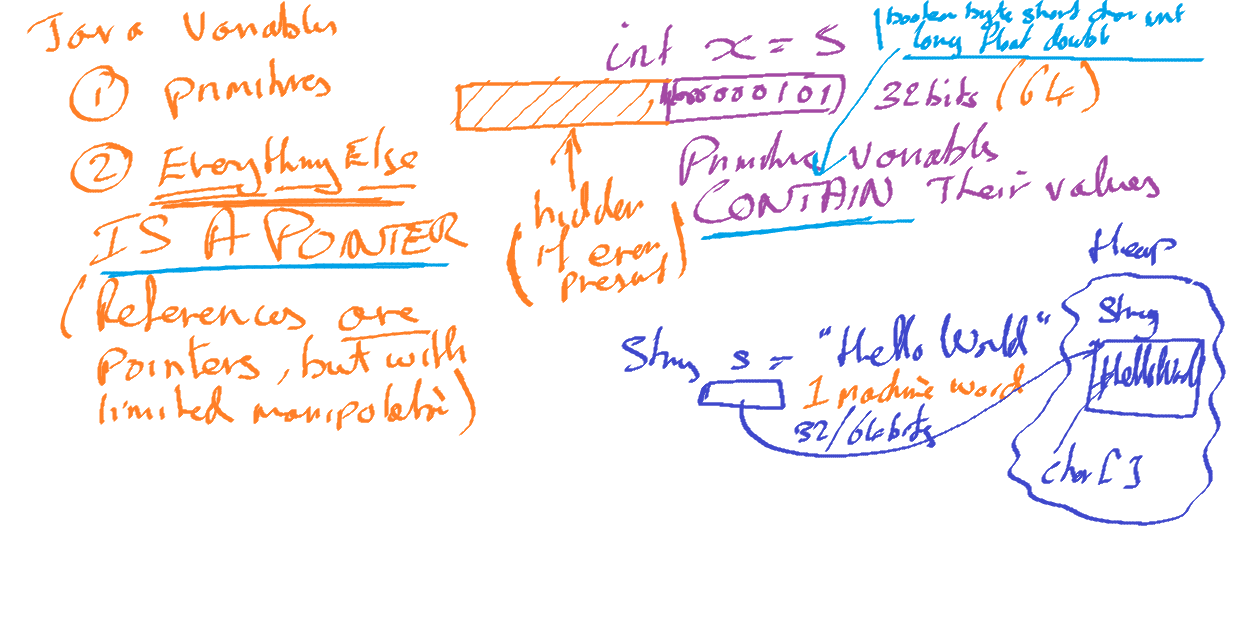 Java Variables
① Primitives
② Everything Else
IS A POINTER
(References are
pointers, but with
limited manipulation)
int x = 5
boolean byte short char int
long float double
000000101
32 bits (64)
Primitive variables
CONTAIN their values
(hidden
if even
present)
Heap
String s = "Hello World"
1 machine word
32/64 bits
String
Hello World
char [ ]